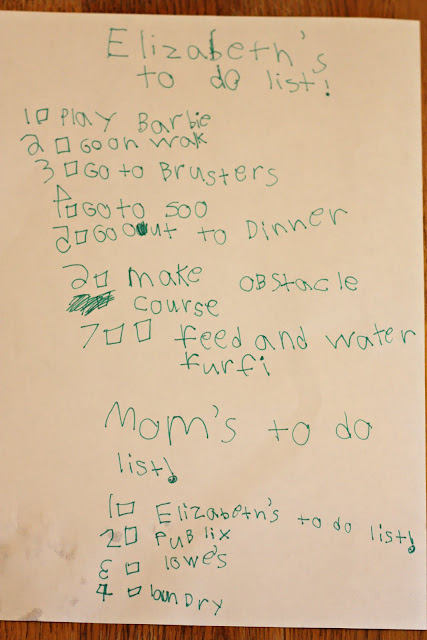 Elizabeth's
to do list!
1 □ Play Barbie
2 □ Go on wak
3 □ Go to Brusters
4 □ Go to soo
5 □ Go Out to Dinner
6 □ make obstacle
course
7 □ □ feed and water
furfi
Mom's to do
list!
1 □ Elizabeth's to do list!
2 □ PuBlix
3 □ lowe's
4 □ lounDry